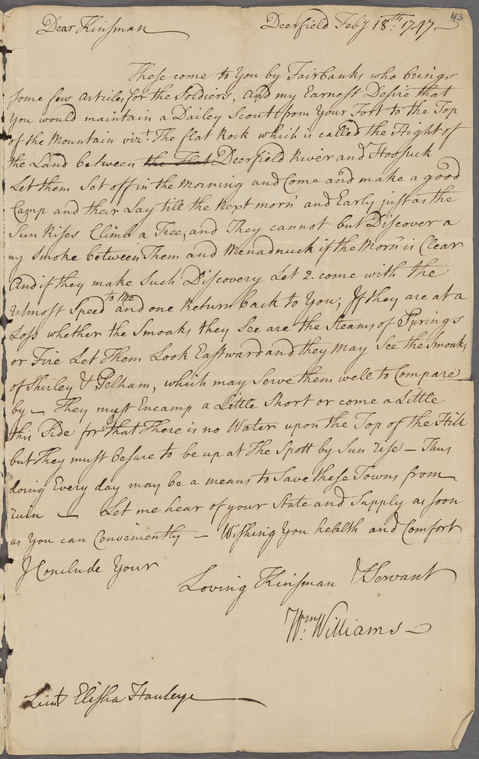 43
Dear Kinsman Deerfield Feby 18th: 1747
These come to You by Fairbanks who brings
some few Articles for the Soldiers, And my Earnest Desire that
You would maintain a Dailey Scout from Your Fort to the Top
of the Mountain vizt. The flat Rock which is called the Hight of
the Land between the flat Deerfield River and Hoosuck
Let them Set off in the Morning and Come and make a good
Camp and their Lay till the Next morn and Early just as the
Sun Rises Climb a Tree, and They cannot but Discover a
ny Smoke between Them and Menadnuck if the Morn is Clear
And if they make Such Discovery Let 2. come with the
Utmost Speed to Me and one Return back to You; If they are at a
Loss whether the Smoaks they See are the Steams of Springs
or Fire Let Them Look Eastward and they may See the Smoaks
of Shirley & Pelham, which may Serve them well to Compare
by — They must Encamp a Little Short or come a Little
this Side for that There is no Water upon the Top of the Hill
but They must be sure to be up at The Spott by Sun rise — Thus
doing Every day may be a means to Save these Towns from
ruin — Let me hear of your State and Supply as soon
as You can Conveniently — Wishing You health and Comfort
I Conclude Your
Loving Kinsman & Servant
Wm: Williams
Lieut Elisha Hawleye